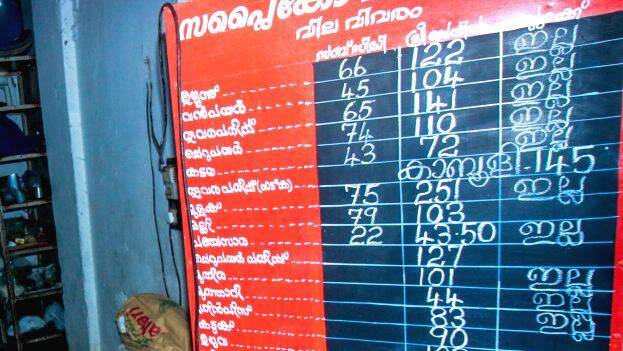 സപ്ലൈകോ
വില വിവരം
സബ്സിഡി
ഉഴുന്ന് 66 122 ഇല്ല
വൻപയർ 45 104 ഇല്ല
തുവരപരിപ്പ് 65 141 ഇല്ല
ചെറുപയർ 74 110 ഇല്ല
കടല 43 72 ഇല്ല
കാബൂളി-145
മുളക് 75 251 ഇല്ല
മല്ലി 79 103
പഞ്ചസാര 22 43.50 ഇല്ല
ചെറുപയർ പരിപ്പ് 127
മുതിര 101 ഇല്ല
44 ഇല്ല
ഗ്രീൻപീസ് 83 ഇല്ല
കടുക് 90 ഇല്ല
ഉലുവ